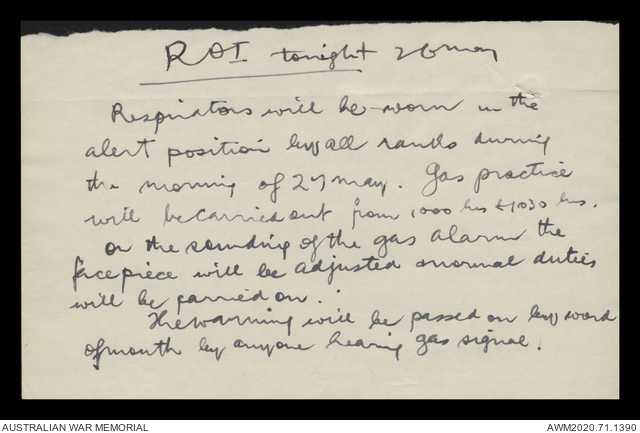 ROI tonight 26 May
Respirators will be worn in the
alert position by all ranks during
the morning of 27 May. Gas practice
will be carried out from 1000 hrs to 1030 hrs.
On the sounding of the gas alarm the
facepiece will be adjusted & normal duties
will be carried on.
The warning will be passed on by word
of mouth by anyone hearing gas signal.
AUSTRALIAN WAR MEMORIAL
AWM2020.71.1390